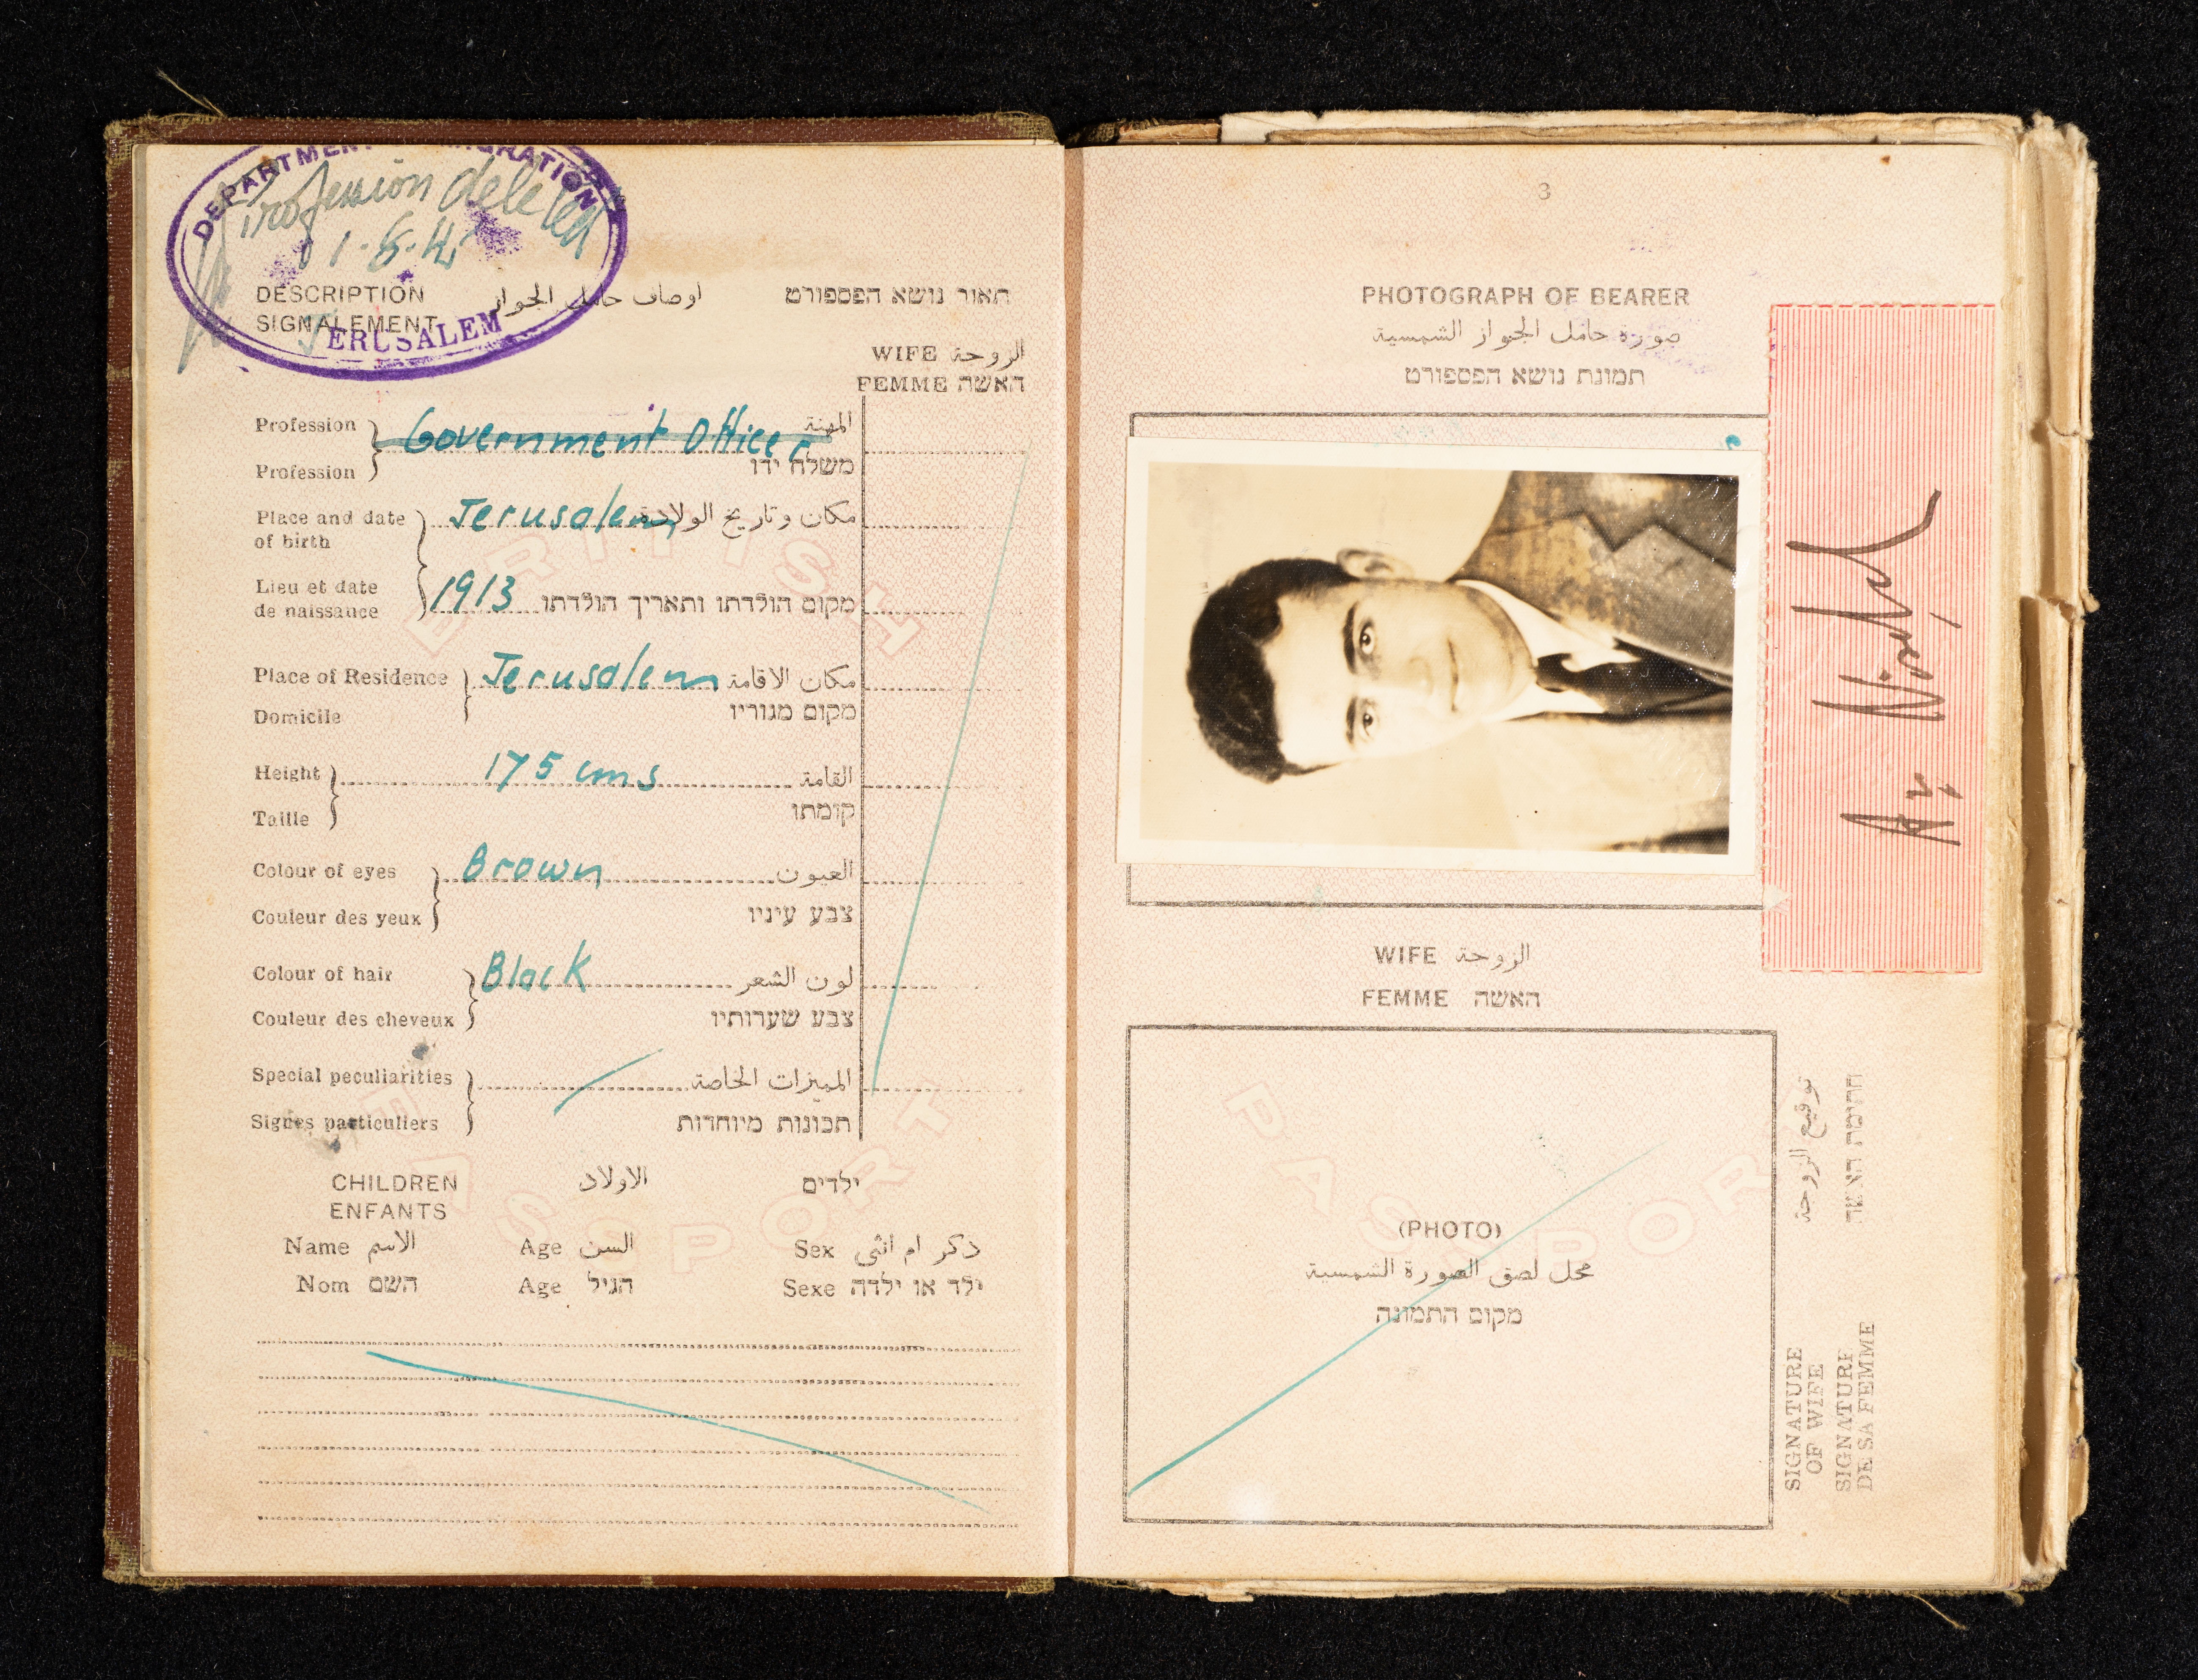 DEPARTMENT
GRATION
Profession deleted
JERUSALEM
DESCRIPTION اوصاف حامل الجواز תאור נושא הפספורט
SIGNALEMENT
WIFE الزوجة
FEMME האשה
Profession Government Officer المهنة
Profession משלח ידו
Place and date of birth Jerusalem مكان وتاريخ الولادة
Lieu et date de naissance 1913 מקום הולדתו ותאריך הולדתו
Place of Residence Jerusalem مكان الاقامة
Domicile מקום מגוריו
Height 175 cms القامة
Taille קומתו
Colour of eyes Brown العيون
Couleur des yeux צבע עיניו
Colour of hair Black لون الشعر
Couleur des cheveux צבע שערותיו
Special peculiarities المميزات الخاصة
Signes particuliers תכונות מיוחדות
CHILDREN الاولاد ילדים
ENFANTS
Name الاسم Age السن Sex ذكر ام انثى
Nom השם Age הגיל Sexe ילד או ילדה
BRITISH
PASSPORT
3
PHOTOGRAPH OF BEARER
صورة حامل الجواز الشمسية
תמונת נושא הפספורט
WIFE الزوجة
FEMME האשה
(PHOTO)
محل لصق الصورة الشمسية
מקום התמונה
PASSPOR
SIGNATURE OF WIFE توقيع الزوجة
SIGNATURE DE SA FEMME חתימת האשה